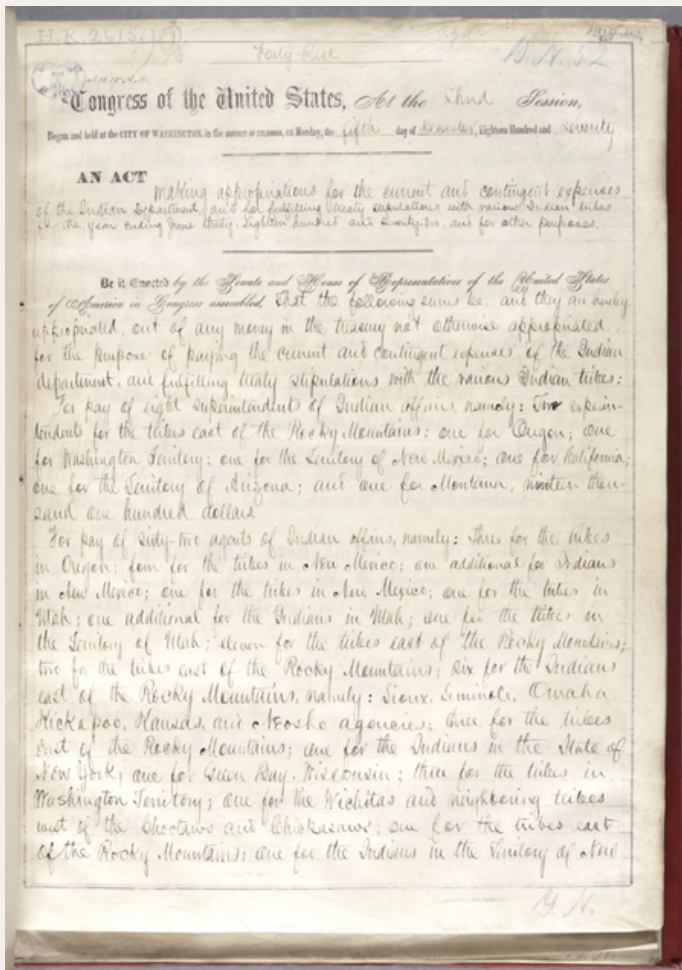 H.R. 2615
Forty First
P. N. 52
Congress of the United States, At the Third Session,
Begun and held at the CITY OF WASHINGTON, in the District of Columbia, on Monday, the fifth day of December, Eighteen Hundred and Seventy
AN ACT making appropriations for the current and contingent expenses
of the Indian Department, and for fulfilling treaty stipulations with various Indian tribes
the year ending June thirty, eighteen hundred and seventy-two, and for other purposes.
Be it Enacted by the Senate and House of Representatives of the United States
of America in Congress assembled, That the following sums be, and they are hereby
appropriated, out of any money in the treasury not otherwise appropriated,
for the purpose of paying the current and contingent expenses of the Indian
department, and fulfilling treaty stipulations with the various Indian tribes:
For pay of eight superintendents of Indian affairs, namely: Two superin-
tendents for the tribes east of the Rocky Mountains; one for Oregon; one
for Washington Territory; one for the Territory of New Mexico; one for California;
one for the Territory of Arizona; and one for Montana, nineteen thou-
sand one hundred dollars
For pay of sixty-two agents of Indian affairs, namely: three for the tribes
in Oregon; four for the tribes in New Mexico; one additional for Indians
in New Mexico; one for the tribes in New Mexico; one for the tribes in
Utah; one additional for the Indians in Utah; one for the tribes in
the Territory of Utah; eleven for the tribes east of the Rocky Mountains;
two for the tribes east of the Rocky Mountains; six for the Indians
east of the Rocky Mountains, namely: Sioux, Seminole, Omaha,
Kickapoo, Kansas, and Neosho agencies; three for the tribes
east of the Rocky Mountains; one for the Indians in the State of
New York; one for Green Bay, Wisconsin; three for the tribes in
Washington Territory; one for the Wichitas and neighboring tribes
west of the Choctaws and Chickasaws; one for the tribes east
of the Rocky Mountains; one for the Indians in the Territory of New
G. N.